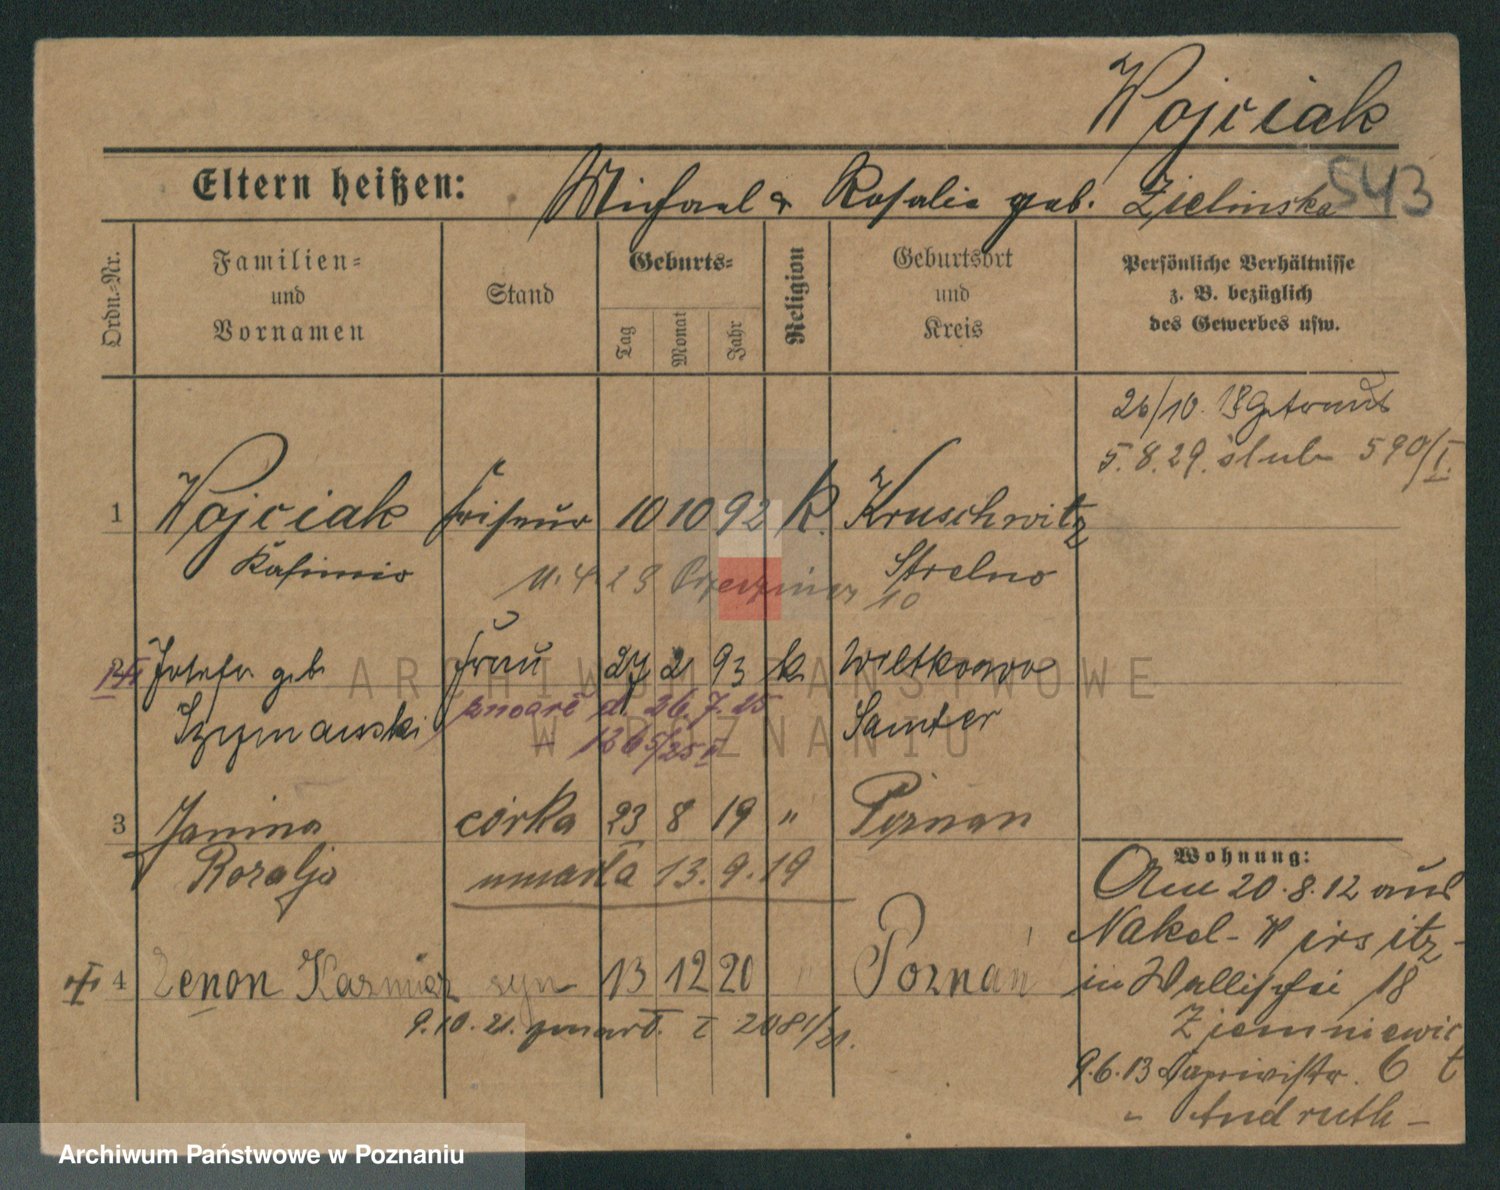 Wojciak
543
Eltern heißen: Michael & Rosalie geb. Zielinska
Ordn.-Nr.
Familien-
und
Vornamen
Stand
Geburts-
Tag
Monat
Jahr
Religion
Geburtsort
und
Kreis
Persönliche Verhältnisse
z. B. bezüglich
des Gewerbes usw.
26/10. 18 getraut
5.8.29. ślub 590/I.
1 Wojciak Friseur 10 10 92 k. Kruschwitz
Kasimir Strelno
4. 29
10
Josefa geb Frau 27 2 93 k. Wiltkowo
Szymanski Samter
d. 26. 7. 25
1365/25 I
3 Janina córka 23 8 19 " Poznan
Rozalja umarła 13. 9. 19
4 Zenon Kazmierz syn 13 12 20 " Poznań
9. 10. 21. zmarł. I 2081/21.
Wohnung:
Am 20.8.12 aus
Nakel - Wirsitz -
in Wallischei 18
Ziemniewic
9.6.13 6 t
" Andruth -
ARCHIWUM PAŃSTWOWE
W POZNANIU
Archiwum Państwowe w Poznaniu